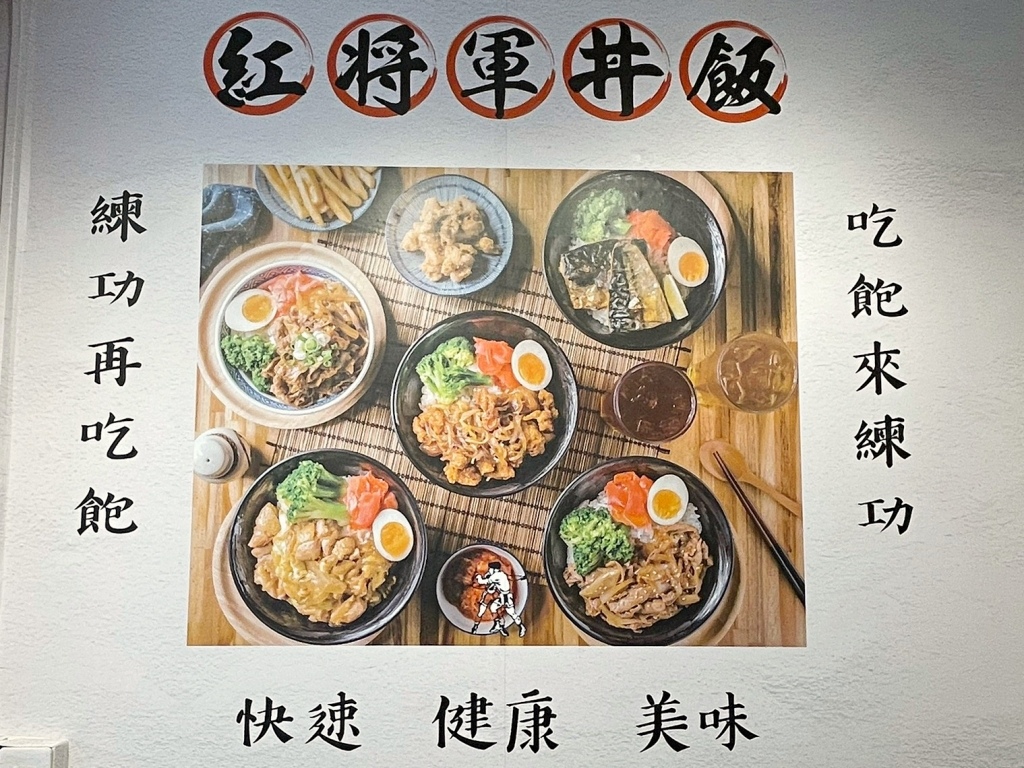 紅将軍丼飯
吃飽來練功
練功再吃飽
快速 健康 美味